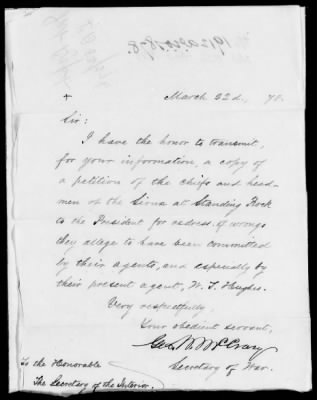 March 22d, 78.
Sir:
I have the honor to transmit,
for your information, a copy of
a petition of the chiefs and head-
men of the Sioux at Standing Rock
to the President for redress of wrongs
they allege to have been committed
by their agents, and especially by
their present agent, W. T. Hughes.
Very respectfully,
Your obedient servant,
Geo. W. McCrary
Secretary of War.
To the Honorable
The Secretary of the Interior.